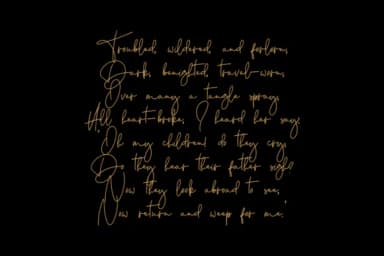 Troubled, wildered, and forlorn,
Dark, benighted, travel-worn,
Over many a tangle spray,
All heart-broke, I heard her say:
'Oh my children! do they cry,
Do they hear their father sigh?
Now they look abroad to see,
Now return and weep for me.'